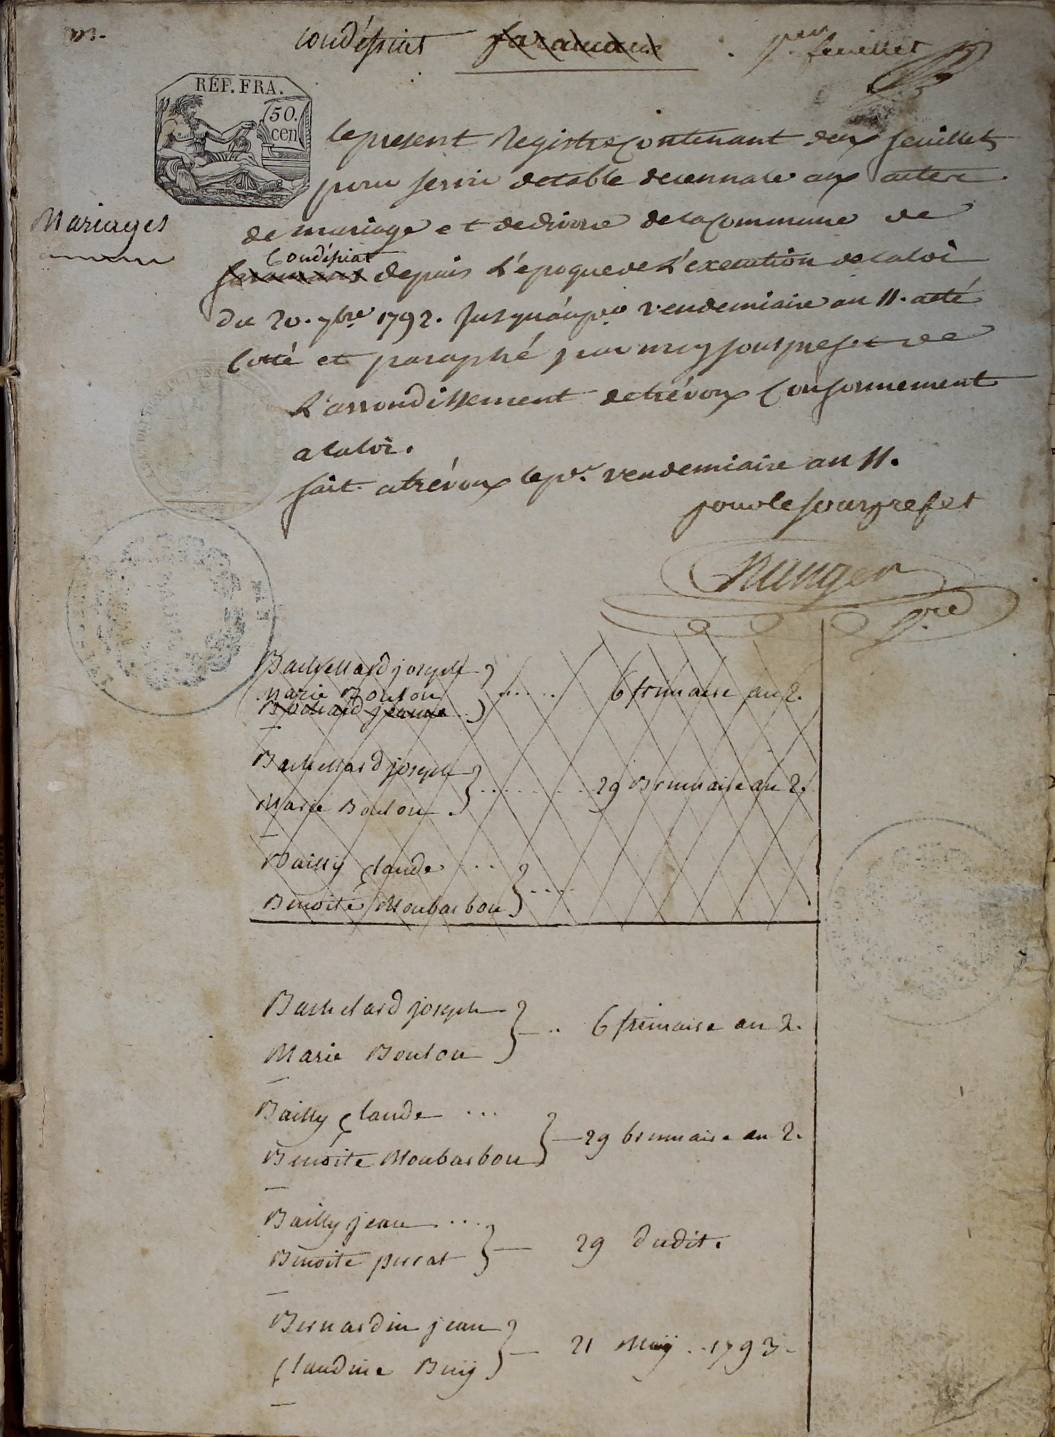 Condéssiat faramans . pier feuillet
RÉP. FRA.
50.
cen
le present Registre Contenant deux feuillets
pour servir de table decennale aux actes
Mariages
de mariage et de divorce de la Commune de
Condéssiat
faramans depuis L'epoque de L'execution de la loi
du 20. 7bre 1792. Jusqu'au pr. vendemiaire an 11. a été
Cotté et paraphé par moy souspréfet de
L'arrondissement de trévoux Conformement
a la loi.
fait a trévoux le pr. vendemiaire an 11.
pour le souspréfet
Bachellard joseph
Marie Boulon ..... 6 frimaire an 2.
Bachellard joseph
Marie Boulon ........ 29 Brumaire an 2.
Bailly Claude ...
Benoite Moubarbon ....
Bachelard joseph
Marie Boulon .. 6 frimaire an 2.
Bailly Claude ...
Benoite Moubarbon — 29 brumaire an 2.
Bailly jean ...
Benoite perrat — 29 dudit.
Bernardin jean
Claudine Buij — 21 Maij . 1793.